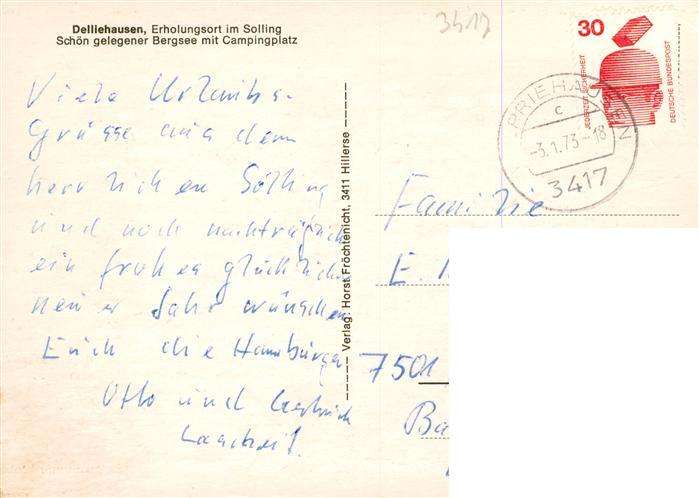 Delliehausen, Erholungsort im Solling
Schön gelegener Bergsee mit Campingplatz
3417
30
JEDERZEIT SICHERHEIT
DEUTSCHE BUNDESPOST
PRIEHAUSEN
c
-3.1.73-18
3417
Viele Urlaubs-
Grüsse aus dem
herrlichen Solling
und noch nachträglich
ein frohes glückliches
neues Jahr wünschen
Euch die Hamburger
Otto und
Verlag: Horst Fröchtenicht, 3411 Hillerse
Familie
E.
7501
Ba